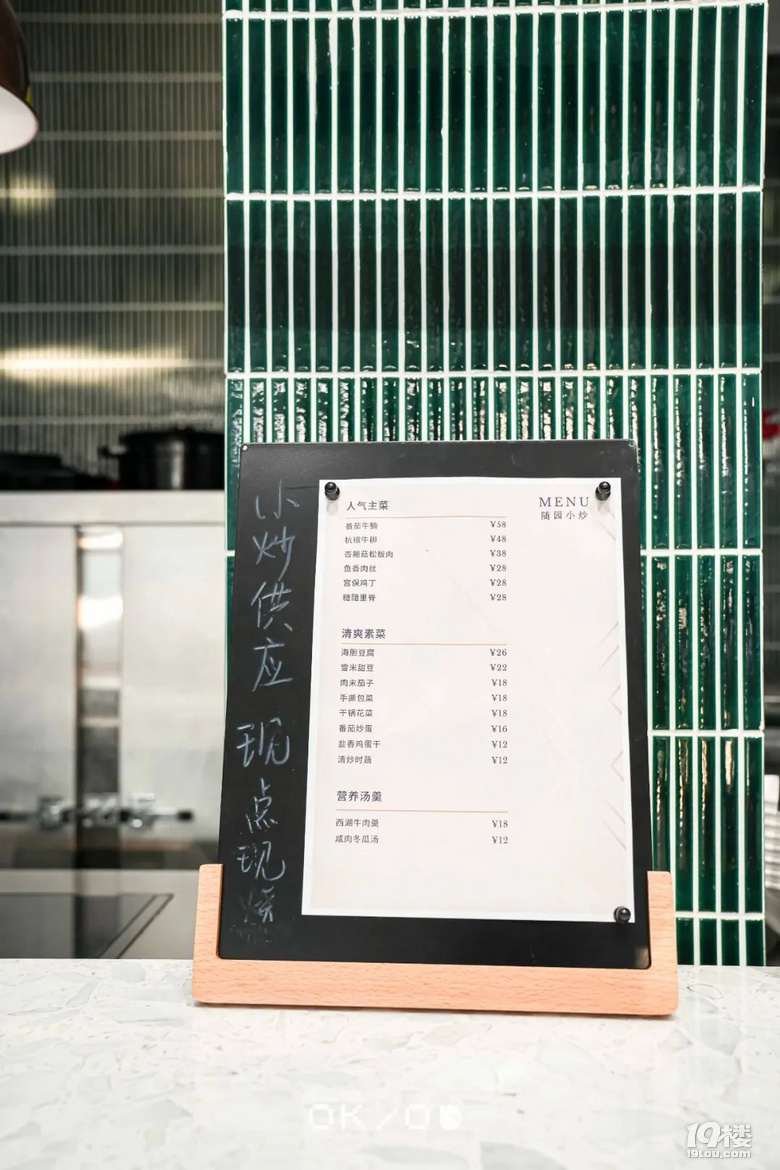 小炒供应 现点现烧
MENU
随园小炒
人气主菜
番茄牛腩 ¥58
杭椒牛柳 ¥48
杏鲍菇松板肉 ¥38
鱼香肉丝 ¥28
宫保鸡丁 ¥28
糖醋里脊 ¥28
清爽素菜
海胆豆腐 ¥26
雪米甜豆 ¥22
肉末茄子 ¥18
手撕包菜 ¥18
干锅花菜 ¥18
番茄炒蛋 ¥16
盐香鸡蛋干 ¥12
清炒时蔬 ¥12
营养汤羹
西湖牛肉羹 ¥18
咸肉冬瓜汤 ¥12
19楼
19lou.com